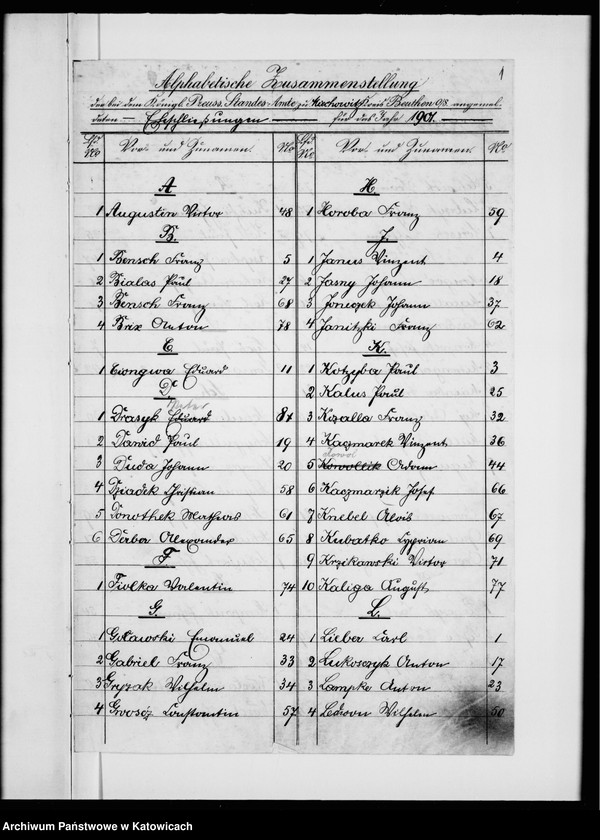 1
Alphabetische Zusammenstellung
der bei dem Königl. Preuss. Standes-Amte zu Kreis Beuthen O/S. angemel-
deten — Eheschließungen — für das Jahr 1901.
Lfd. No Vor- und Zunamen. No
A
1 Augustin Victor 48
B.
1 Bensch Franz 5
2 Bialas Paul 27
3 Bensch Franz 68
4 Brix Anton 78
C.
1 Eduard 11
D.
1 Drasyk Eduard 8
2 Dawid Paul 19
3 Duda Johann 20
4 Dziadek Christian 58
5 Donothek Matheus 61
6 Alexander 65
F
1 Fiolka Valentin 74
G.
1 Emanuel 24
2 Gabriel Franz 33
3 Gryzak Wilhelm 34
4 Constantin 57
Lfd. No Vor- und Zunamen. No
H.
1 Horoba Franz 59
J.
1 Janus Vinzent 4
2 Jasny Johann 18
3 Jonczek Johann 37
4 Janitzki Franz 62
K.
1 Kotzyba Paul 3
2 Kalus Paul 25
3 Kozalla Franz 32
4 Kaczmarek Vinzent 36
5 44
6 Kaczmarzik Josef 66
7 Knebel Alois 67
8 Kubatko Cyprian 69
9 Krzikawski Victor 71
10 Kaliga August 77
L.
1 Lieber Carl 1
2 Lukosczyk Anton 17
3 Lampka Anton 23
4 Wilhelm 50
Archiwum Państwowe w Katowicach